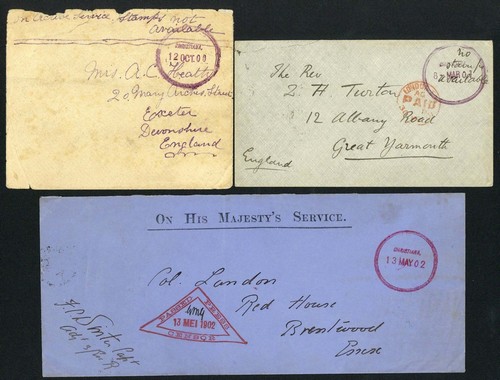 On Active Service, Stamps not
available
12 OCT. 00
Mrs. A. C. Heatty
20 Mary Arches Street
Exeter
Devonshire
England
no
stamps
available
MAR 02
LONDON
PAID
The Rev
Z. H Turton
12 Albany Road
Great Yarmouth
England
ON HIS MAJESTY'S SERVICE.
13 MAY. 02
Col. Landon
Red House
Brentwood
Essex
PASSED PRESS
13 MEI 1902
CENSOR
Capt